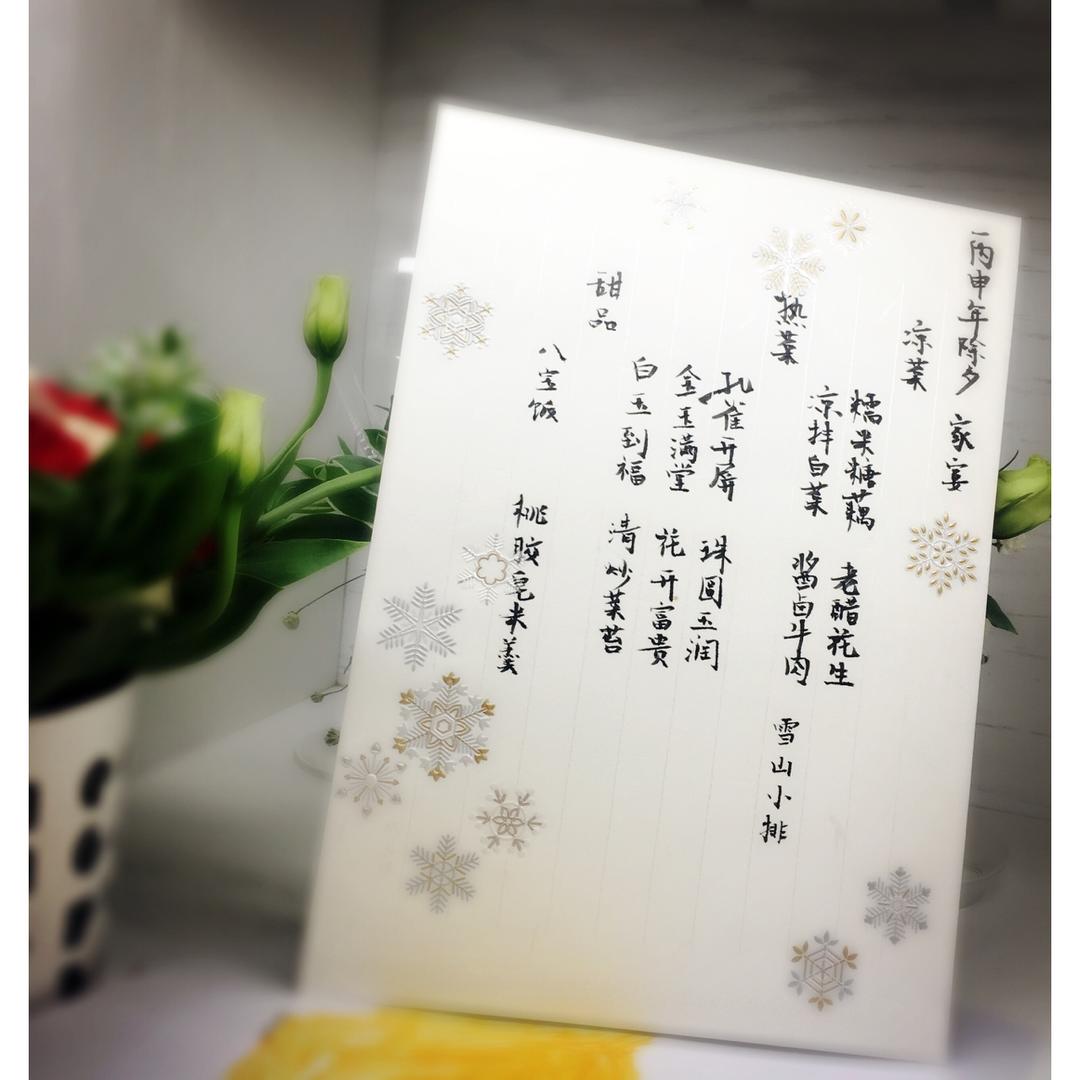 丙申年除夕 家宴
凉菜
糯米糖藕 老醋花生
凉拌白菜 酱卤牛肉 雪山小排
热菜
孔雀开屏 珠圆玉润
金玉满堂 花开富贵
白玉到福 清炒菜苔
甜品
八宝饭 桃胶皂米羹